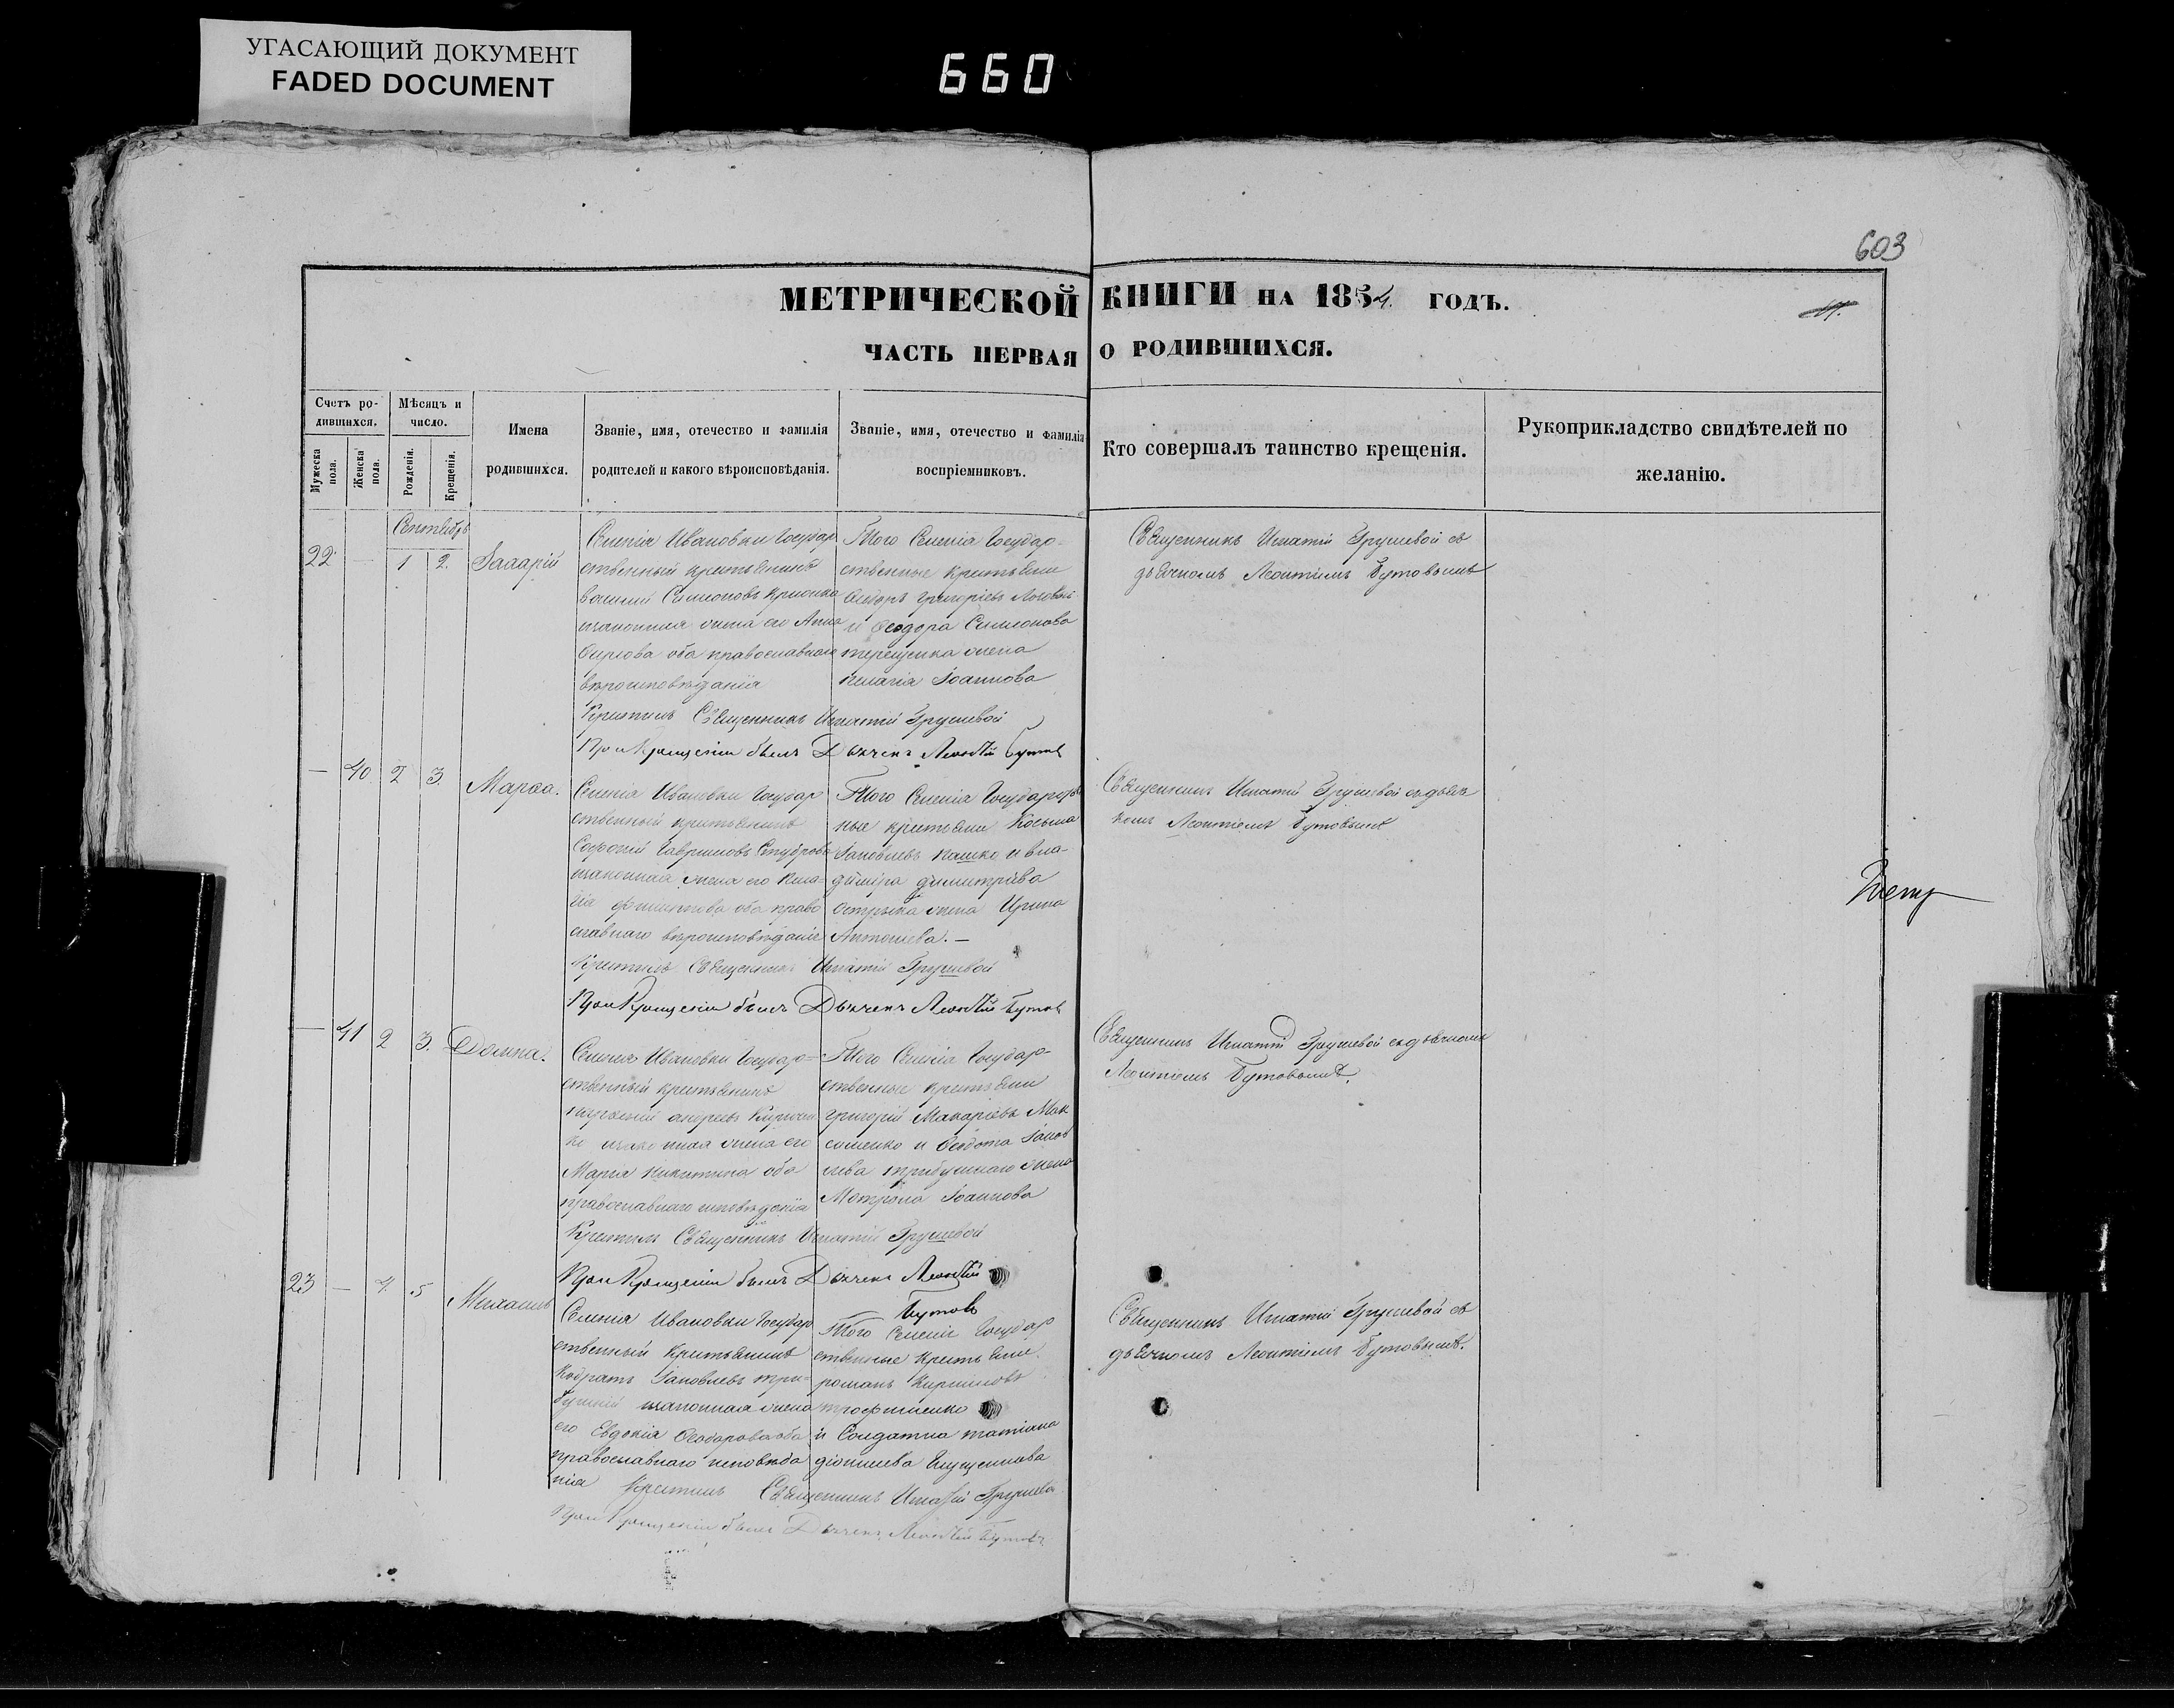 УГАСАЮЩИЙ ДОКУМЕНТ
FADED DOCUMENT
660
603
МЕТРИЧЕСКОЙ КНИГИ НА 1854. ГОДЪ.
ЧАСТЬ ПЕРВАЯ О РОДИВШИХСЯ.
Счетъ ро-
дившихся.
Мужеска пола.
Женска пола.
Мѣсяцъ и
число.
Рожденія.
Крещенія.
Имена
родившихся.
Званіе, имя, отечество и фамилія
родителей и какого вѣроисповѣданія.
Званіе, имя, отечество и фамилія
воспріемниковъ.
Кто совершалъ таинство крещенія.
Рукоприкладство свидѣтелей по
желанію.
Сентябрь
22 — 1 2.
Селенія Ивановки Государ
ственный крестьянинъ
законная жена его Анна
оба православнаго
вѣроисповѣданія
Того Селенія Государ-
ственные крестьяне
Ѳеодоръ Григоріевъ
и Ѳеодора Симеонова
терещенка жена
Іоаннова
Священникъ Игнатій Грушевой съ
дьячкомъ Леонтіемъ Бутовымъ
Крестилъ Священникъ Игнатій Грушевой
При Крещеніи былъ Дьячекъ Леонтій Бутовъ
— 40. 2 3. Марѳа.
Селенія Ивановки Государ
ственный крестьянинъ
Гавриловъ
законная жена его
филиппова оба право
славнаго вѣроисповѣданія
Того Селенія Государств
ные крестьяне Косьма
Іаковлевъ Пашко и Вла-
диміра димитріева
жена Ирина
Антоніева. —
Священникъ Игнатій Грушевой съ дьяч
комъ Леонтіемъ Бутовымъ
Крестилъ Священникъ Игнатій Грушевой
При Крещеніи былъ Дьячекъ Леонтій Бутовъ
— 41 2 3. Домна.
Селенія Ивановки Государ-
ственный крестьянинъ
андреевъ
законная жена его
Марія Никитина оба
православнаго исповѣданія
Того Селенія Государ-
ственные крестьяне
григорій Макаріевъ Мак
сименко и Ѳеодота Іаков
лева жена
Матрона Іоаннова
Священникъ Игнатій Грушевой съ дьячкомъ
Леонтіемъ Бутовымъ.
Крестилъ Священникъ Игнатій Грушевой
При Крещеніи былъ Дьячекъ Леонтій
Бутовъ
23 — 4. 5 Михаилъ
Селенія Ивановки Государ
ственный Крестьянинъ
Кодратъ Іаковлевъ три-
законная жена
его Евдокія Ѳеодорова оба
православнаго исповѣда
нія
Того Селенія Государ
ственные крестьяне
романъ Кирилловъ
трофименко
и Солдатка татіана
діонисіева
Священникъ Игнатій Грушевой съ
дьячкомъ Леонтіемъ Бутовымъ.
Крестилъ Священникъ Игнатій Грушевой
При Крещеніи былъ Дьячекъ Леонтій Бутовъ